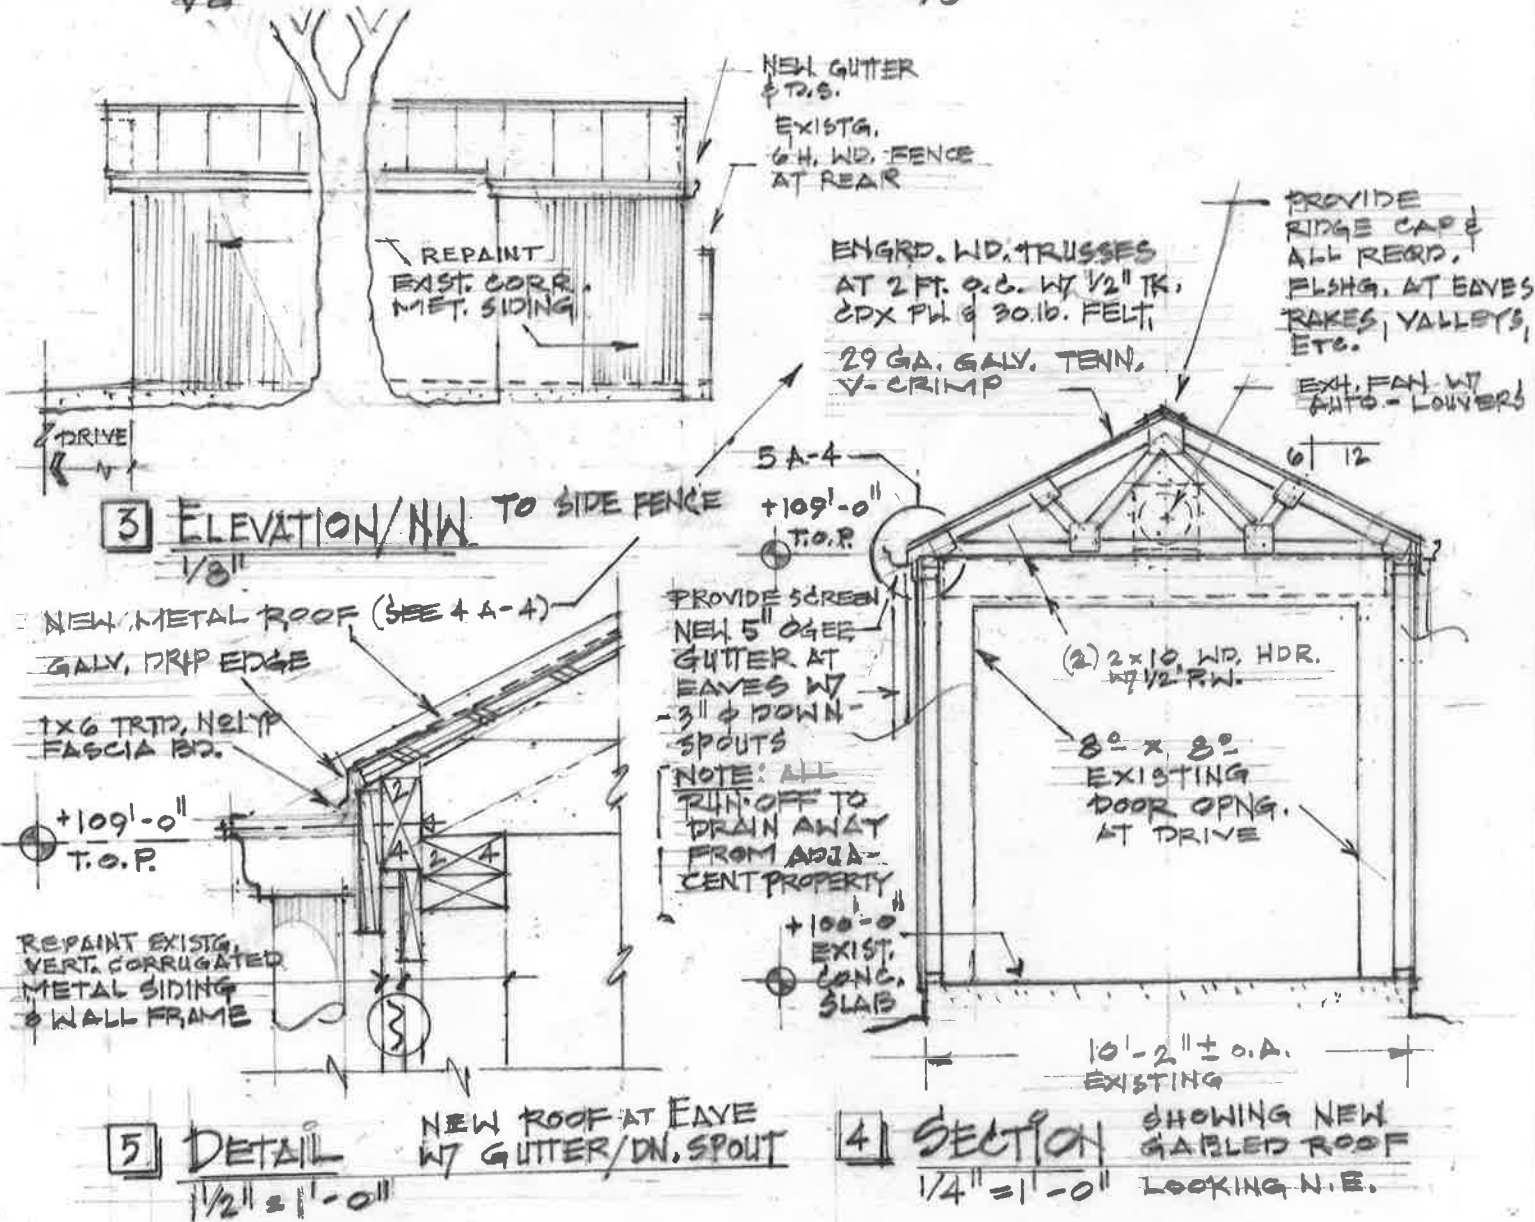 NEW GUTTER
& D.S.
EXISTG.
6 H. WD. FENCE
AT REAR
REPAINT
EXIST. CORR.
MET. SIDING
DRIVE
N
3 ELEVATION/NW TO SIDE FENCE
1/8"
ENGRD. WD. TRUSSES
AT 2 FT. O.C. W/ 1/2" TK.
CDX PW & 30 lb. FELT,
29 GA. GALV. TENN.
V-CRIMP
PROVIDE
RIDGE CAP &
ALL REQD.
FLSHG. AT EAVES
RAKES, VALLEYS,
ETC.
EXH. FAN W/
AUTO-LOUVERS
6 12
5 A-4
+109'-0"
T.O.P.
PROVIDE SCREEN
NEW 5" OGEE
GUTTER AT
EAVES W/
3" φ DOWN-
SPOUTS
NOTE: ALL
RUN-OFF TO
DRAIN AWAY
FROM ADJA-
CENT PROPERTY
+100'-0"
EXIST.
CONC.
SLAB
(2) 2x10 WD. HDR.
W/ 1/2" P.W.
8º x 8º
EXISTING
DOOR OPNG.
AT DRIVE
10'-2" ± O.A.
EXISTING
4 SECTION SHOWING NEW
GABLED ROOF
1/4" = 1'-0" LOOKING N.E.
NEW METAL ROOF (SEE 4 A-4)
GALV. DRIP EDGE
1x6 TRTD. No1 YP
FASCIA BD.
+109'-0"
T.O.P.
2
4
2 4
REPAINT EXISTG.
VERT. CORRUGATED
METAL SIDING
& WALL FRAME
5 DETAIL NEW ROOF AT EAVE
W/ GUTTER/DN. SPOUT
1 1/2" = 1'-0"